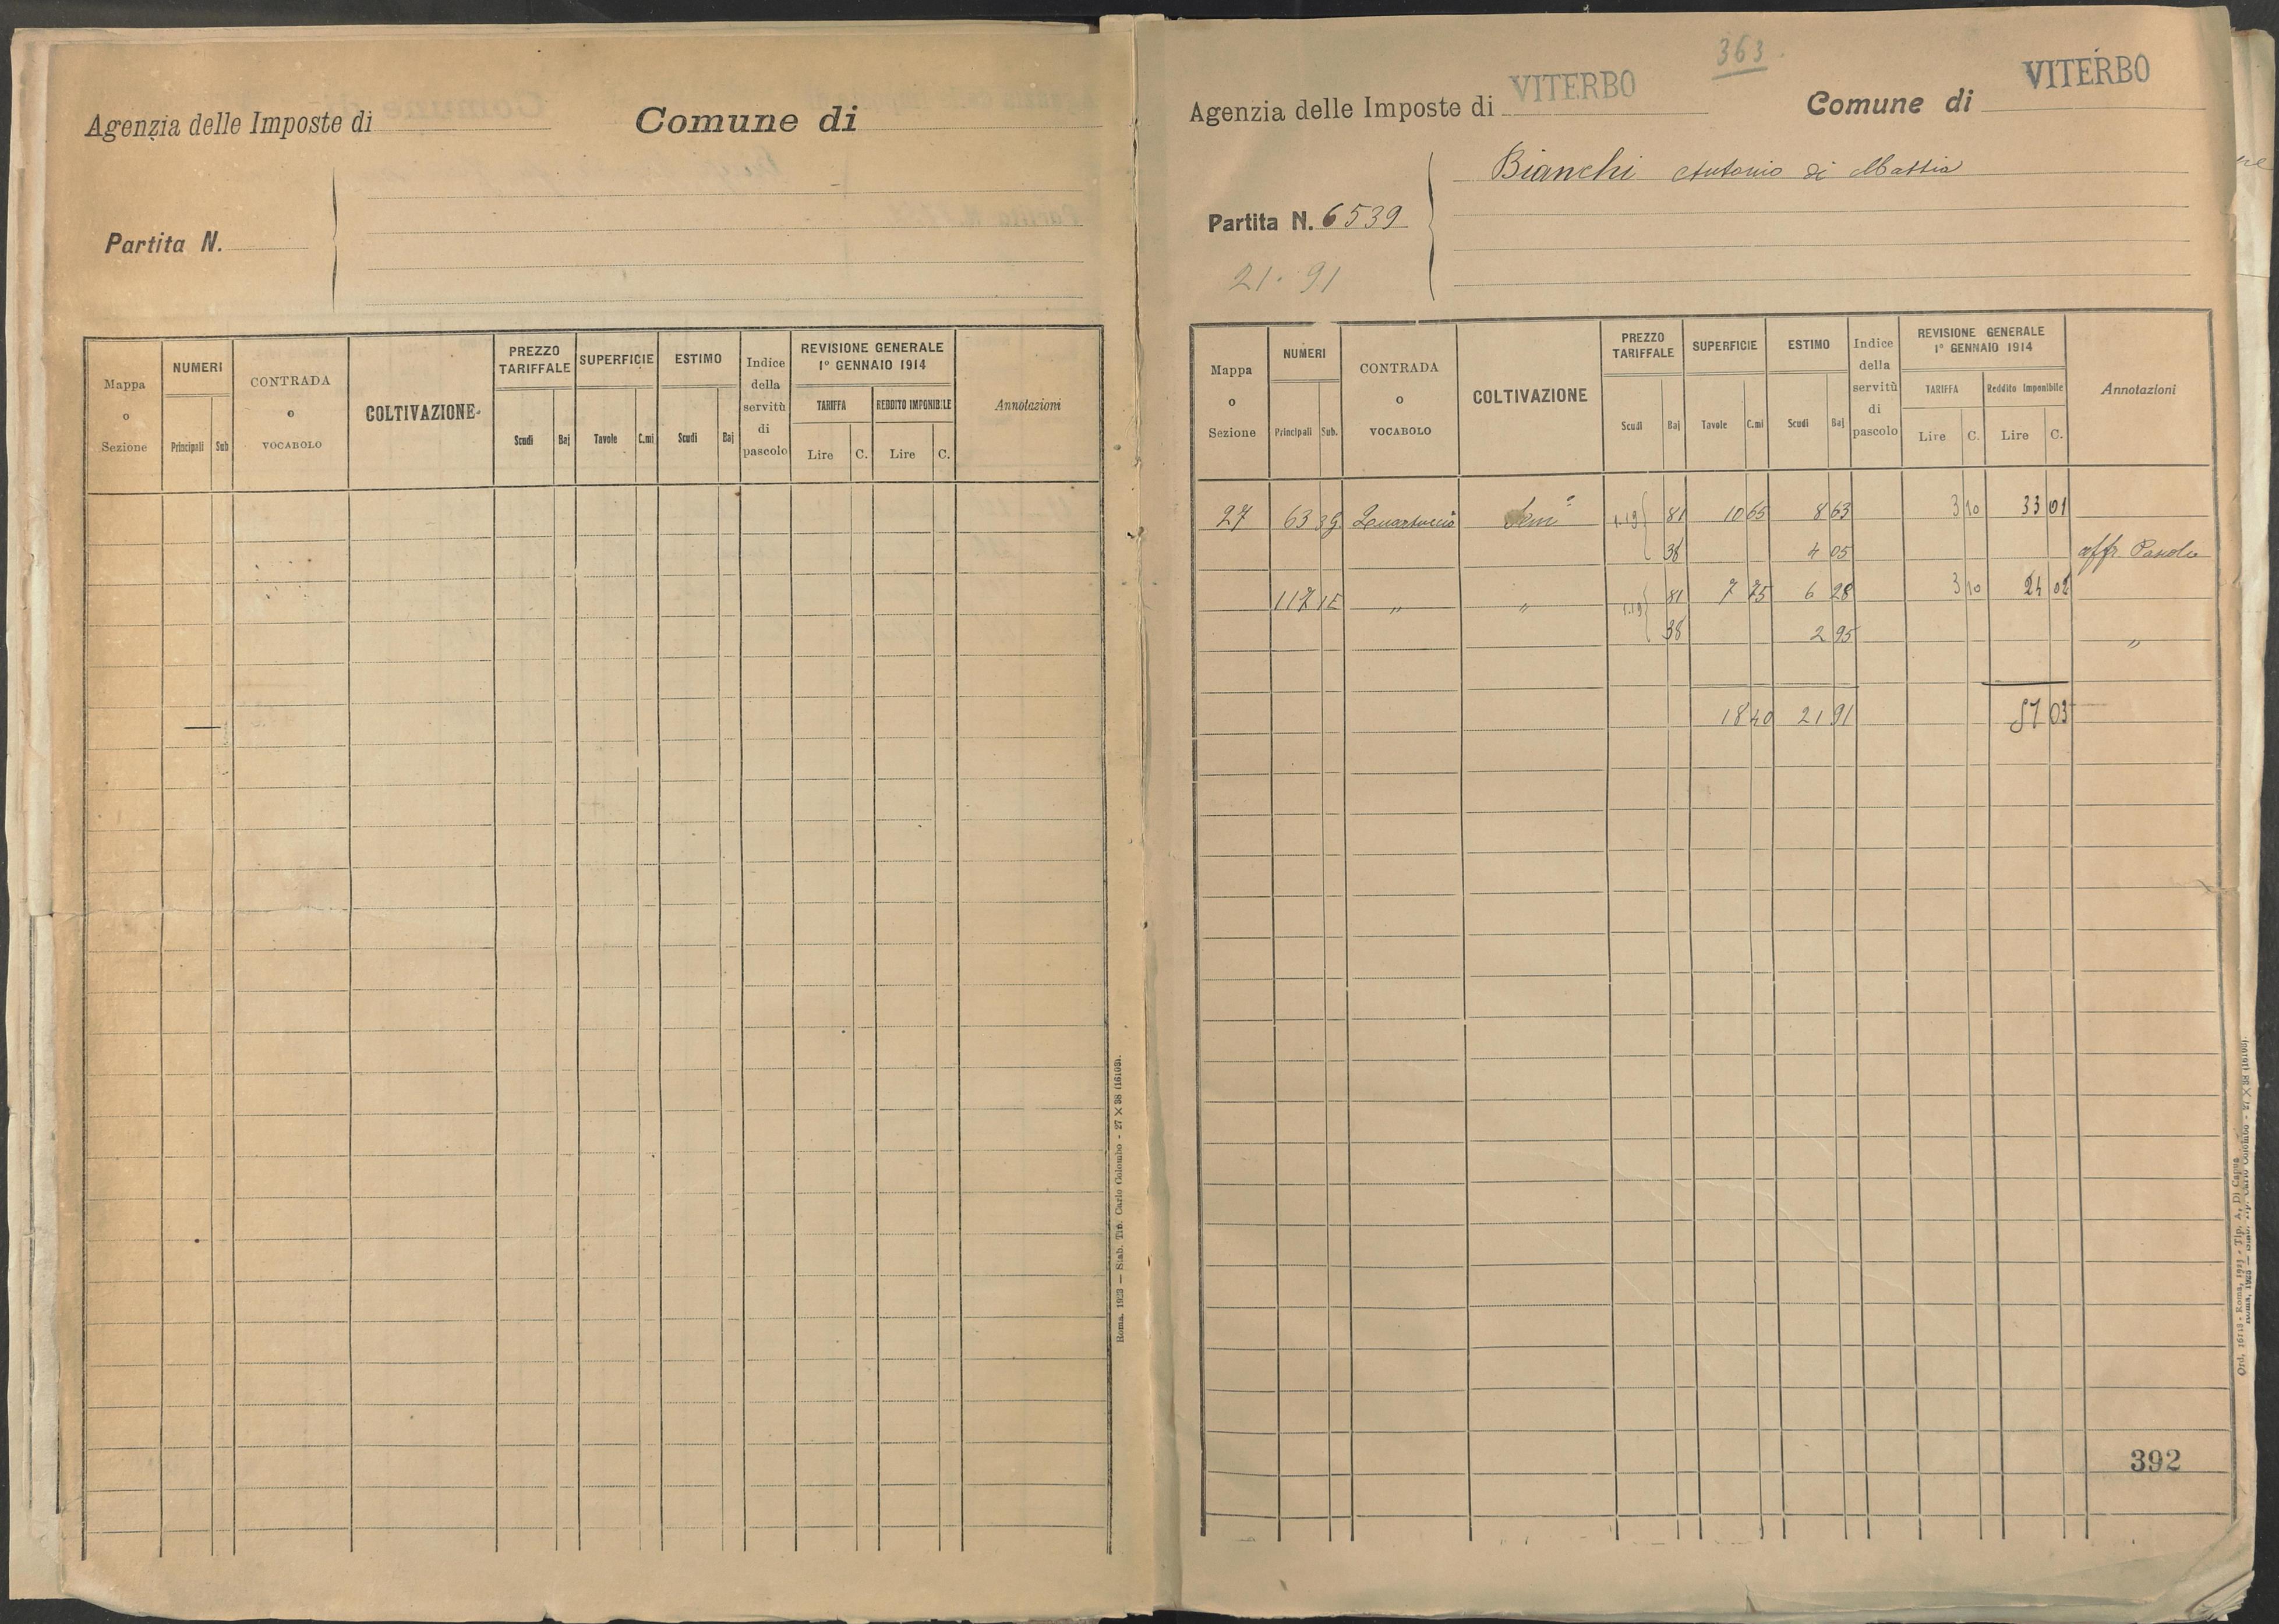 Agenzia delle Imposte di
Comune di
Partita N.
Mappa o Sezione
NUMERI
Principali
Sub
CONTRADA o VOCABOLO
COLTIVAZIONE
PREZZO TARIFFALE
Scudi
Baj
SUPERFICIE
Tavole
C.mi
ESTIMO
Scudi
Baj
Indice della servitù di pascolo
REVISIONE GENERALE
1º GENNAIO 1914
TARIFFA
REDDITO IMPONIBILE
Lire
C.
Lire
C.
Annotazioni
Roma, 1923 — Stab. Tip. Carlo Colombo - 27 × 38 (16103).
363
Agenzia delle Imposte di VITERBO
Comune di VITERBO
Bianchi Antonio di Mattia
Partita N. 6539
21.91
Mappa o Sezione
NUMERI
Principali
Sub.
CONTRADA o VOCABOLO
COLTIVAZIONE
PREZZO TARIFFALE
Scudi
Baj
SUPERFICIE
Tavole
C.mi
ESTIMO
Scudi
Baj
Indice della servitù di pascolo
REVISIONE GENERALE
1º GENNAIO 1914
TARIFFA
Reddito Imponibile
Lire
C.
Lire
C.
Annotazioni
27 63 39 Quartuccio Semº 1.19 { 81 10 65 8 63 3 10 33 01
38 4 05 affr. Pascolo
117 1E " " 1.19 { 81 7 75 6 28 3 10 24 02
38 2 95 "
18 40 21 91 57 03
392
Ord. 16113 - Roma, 1923 - Tip. A. Di Capua
Roma, 1923 — Stab. Tip. Carlo Colombo - 27 × 38 (16103).